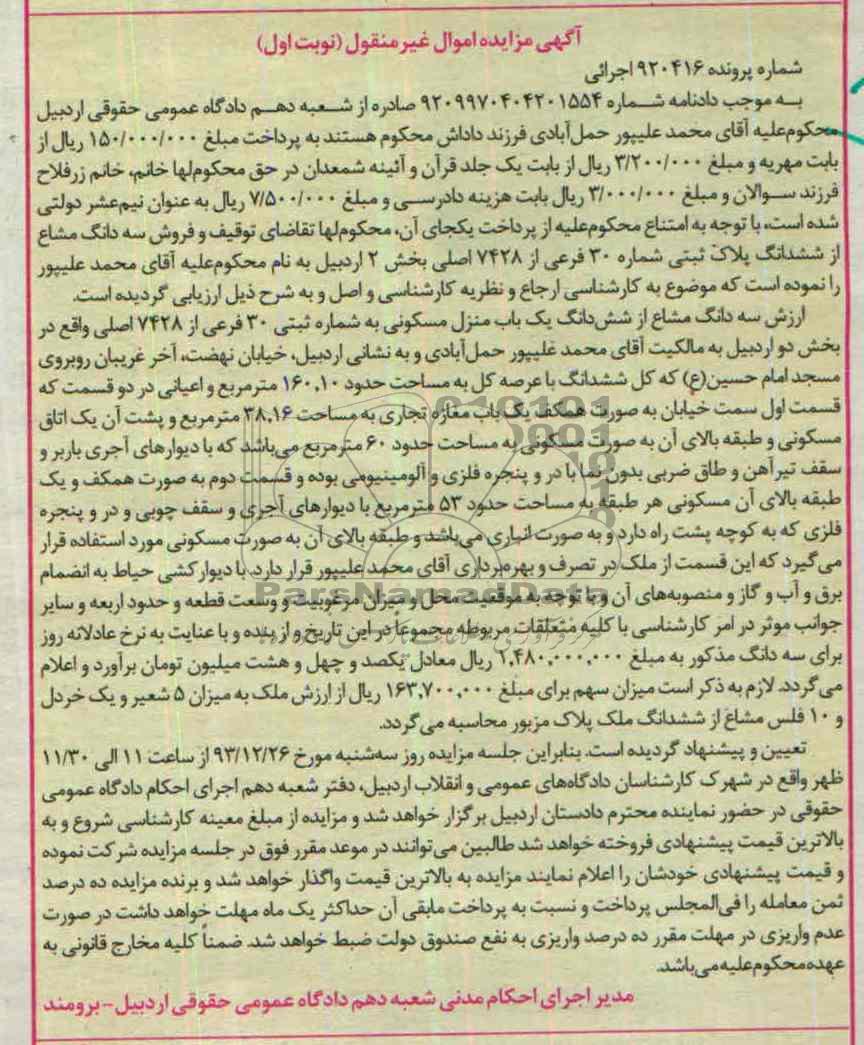 آگهی مزایده اموال غیرمنقول (نوبت اول)
شماره پرونده ۹۲۰۴۱۶ اجرائی
به موجب دادنامه شماره ۹۲۰۹۹۷۰۴۰۴۲۰۱۵۵۴ صادره از شعبه دهم دادگاه عمومی حقوقی اردبیل
محکوم‌علیه آقای محمد علیپور حمل‌آبادی فرزند داداش محکوم هستند به پرداخت مبلغ ۱۵۰/۰۰۰/۰۰۰ ریال از
بابت مهریه و مبلغ ۳/۲۰۰/۰۰۰ ریال از بابت یک جلد قرآن و آئینه شمعدان در حق محکوم‌لها خانم، خانم زرفلاح
فرزند سوالان و مبلغ ۳/۰۰۰/۰۰۰ ریال بابت هزینه دادرسی و مبلغ ۷/۵۰۰/۰۰۰ ریال به عنوان نیم‌عشر دولتی
شده است، با توجه به امتناع محکوم‌علیه از پرداخت یکجای آن، محکوم‌لها تقاضای توقیف و فروش سه دانگ مشاع
از ششدانگ پلاک ثبتی شماره ۳۰ فرعی از ۷۴۲۸ اصلی بخش ۲ اردبیل به نام محکوم‌علیه آقای محمد علیپور
را نموده است که موضوع به کارشناسی ارجاع و نظریه کارشناسی و اصل و به شرح ذیل ارزیابی گردیده است.
ارزش سه دانگ مشاع از شش‌دانگ یک باب منزل مسکونی به شماره ثبتی ۳۰ فرعی از ۷۴۲۸ اصلی واقع در
بخش دو اردبیل به مالکیت آقای محمد علیپور حمل‌آبادی و به نشانی اردبیل، خیابان نهضت، آخر غریبان روبروی
مسجد امام حسین(ع) که کل ششدانگ با عرصه کل به مساحت حدود ۱۶۰.۱۰ مترمربع و اعیانی در دو قسمت که
قسمت اول سمت خیابان به صورت همکف یک باب مغازه تجاری به مساحت ۳۸.۱۶ مترمربع و پشت آن یک اتاق
مسکونی و طبقه بالای آن به صورت مسکونی به مساحت حدود ۶۰ مترمربع می‌باشد که با دیوارهای آجری باربر و
سقف تیرآهن و طاق ضربی بدون نما با در و پنجره فلزی و آلومینیومی بوده و قسمت دوم به صورت همکف و یک
طبقه بالای آن مسکونی هر طبقه به مساحت حدود ۵۳ مترمربع با دیوارهای آجری و سقف چوبی و در و پنجره
فلزی که به کوچه پشت راه دارد و به صورت انباری می‌باشد و طبقه بالای آن به صورت مسکونی مورد استفاده قرار
می‌گیرد که این قسمت از ملک در تصرف و بهره‌برداری آقای محمد علیپور قرار دارد. با دیوارکشی حیاط به انضمام
برق و آب و گاز و منصوبه‌های آن و با توجه به موقعیت محل و میزان مرغوبیت و وسعت قطعه و حدود اربعه و سایر
جوانب موثر در امر کارشناسی با کلیه متعلقات مربوطه مجموعاً در این تاریخ و از بنده و با عنایت به نرخ عادلانه روز
برای سه دانگ مذکور به مبلغ ۱,۴۸۰,۰۰۰,۰۰۰ ریال معادل یکصد و چهل و هشت میلیون تومان برآورد و اعلام
می‌گردد. لازم به ذکر است میزان سهم برای مبلغ ۱۶۳,۷۰۰,۰۰۰ ریال از ارزش ملک به میزان ۵ شعیر و یک خردل
و ۱۰ فلس مشاع از ششدانگ ملک پلاک مزبور محاسبه می‌گردد.
تعیین و پیشنهاد گردیده است. بنابراین جلسه مزایده روز سه‌شنبه مورخ ۹۳/۱۲/۲۶ از ساعت ۱۱ الی ۱۱/۳۰
ظهر واقع در شهرک کارشناسان دادگاه‌های عمومی و انقلاب اردبیل، دفتر شعبه دهم اجرای احکام دادگاه عمومی
حقوقی در حضور نماینده محترم دادستان اردبیل برگزار خواهد شد و مزایده از مبلغ معینه کارشناسی شروع و به
بالاترین قیمت پیشنهادی فروخته خواهد شد طالبین می‌توانند در موعد مقرر فوق در جلسه مزایده شرکت نموده
و قیمت پیشنهادی خودشان را اعلام نمایند مزایده به بالاترین قیمت واگذار خواهد شد و برنده مزایده ده درصد
ثمن معامله را فی‌المجلس پرداخت و نسبت به پرداخت مابقی آن حداکثر یک ماه مهلت خواهد داشت در صورت
عدم واریزی در مهلت مقرر ده درصد واریزی به نفع صندوق دولت ضبط خواهد شد. ضمناً کلیه مخارج قانونی به
عهده‌محکوم‌علیه‌می‌باشد.
مدیر اجرای احکام مدنی شعبه دهم دادگاه عمومی حقوقی اردبیل-برومند
ParsNamadData